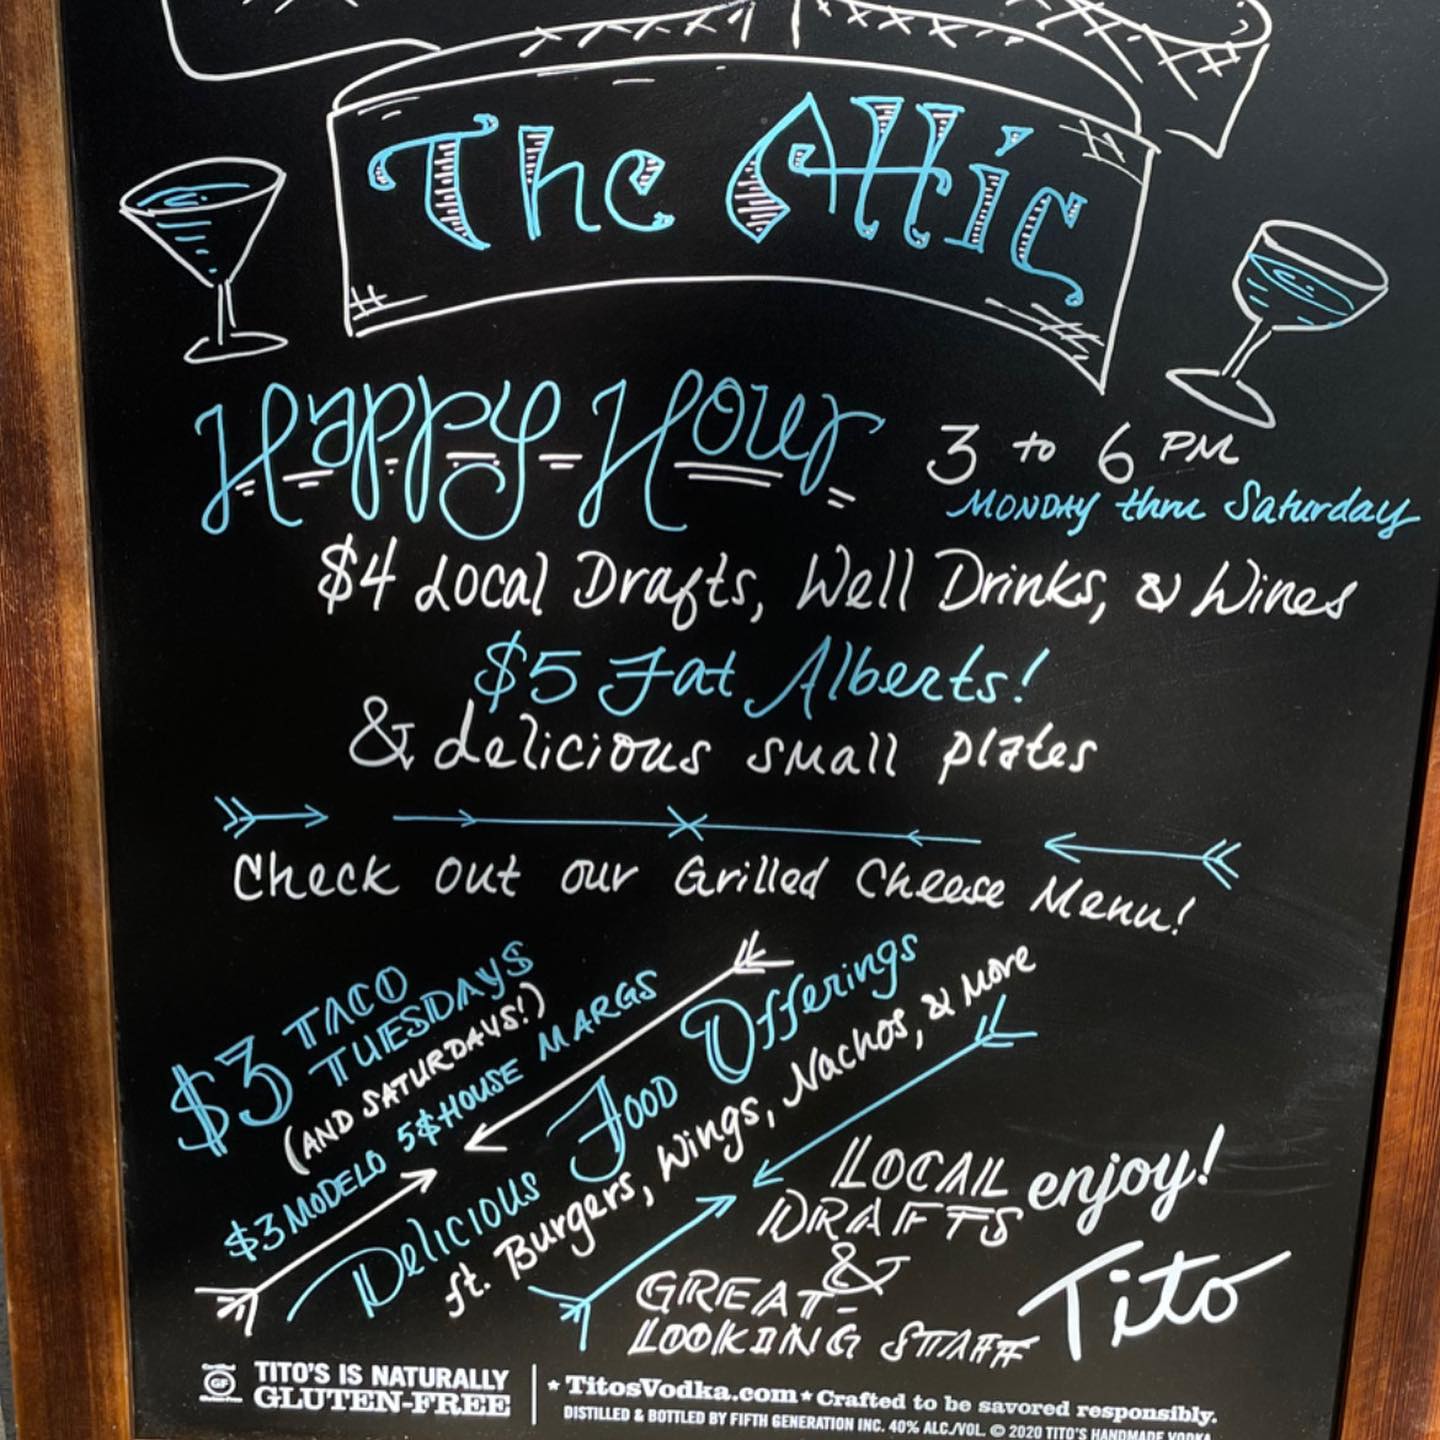 The Attic
Happy Hour 3 to 6 PM
MONDAY thru Saturday
$4 Local Drafts, Well Drinks, & Wines
$5 Fat Alberts!
& delicious small plates
Check out our Grilled Cheese Menu!
$3 TACO
TUESDAYS
(AND SATURDAYS!)
$3 MODELO 5$ HOUSE MARGS
Delicious Food Offerings
ft. Burgers, Wings, Nachos, & More
LOCAL
DRAFTS
&
GREAT-
LOOKING STAFF
enjoy!
Tito
GF
TITO'S IS NATURALLY
GLUTEN-FREE
★ TitosVodka.com ★ Crafted to be savored responsibly.
DISTILLED & BOTTLED BY FIFTH GENERATION INC. 40% ALC./VOL. © 2020 TITO'S HANDMADE VODKA